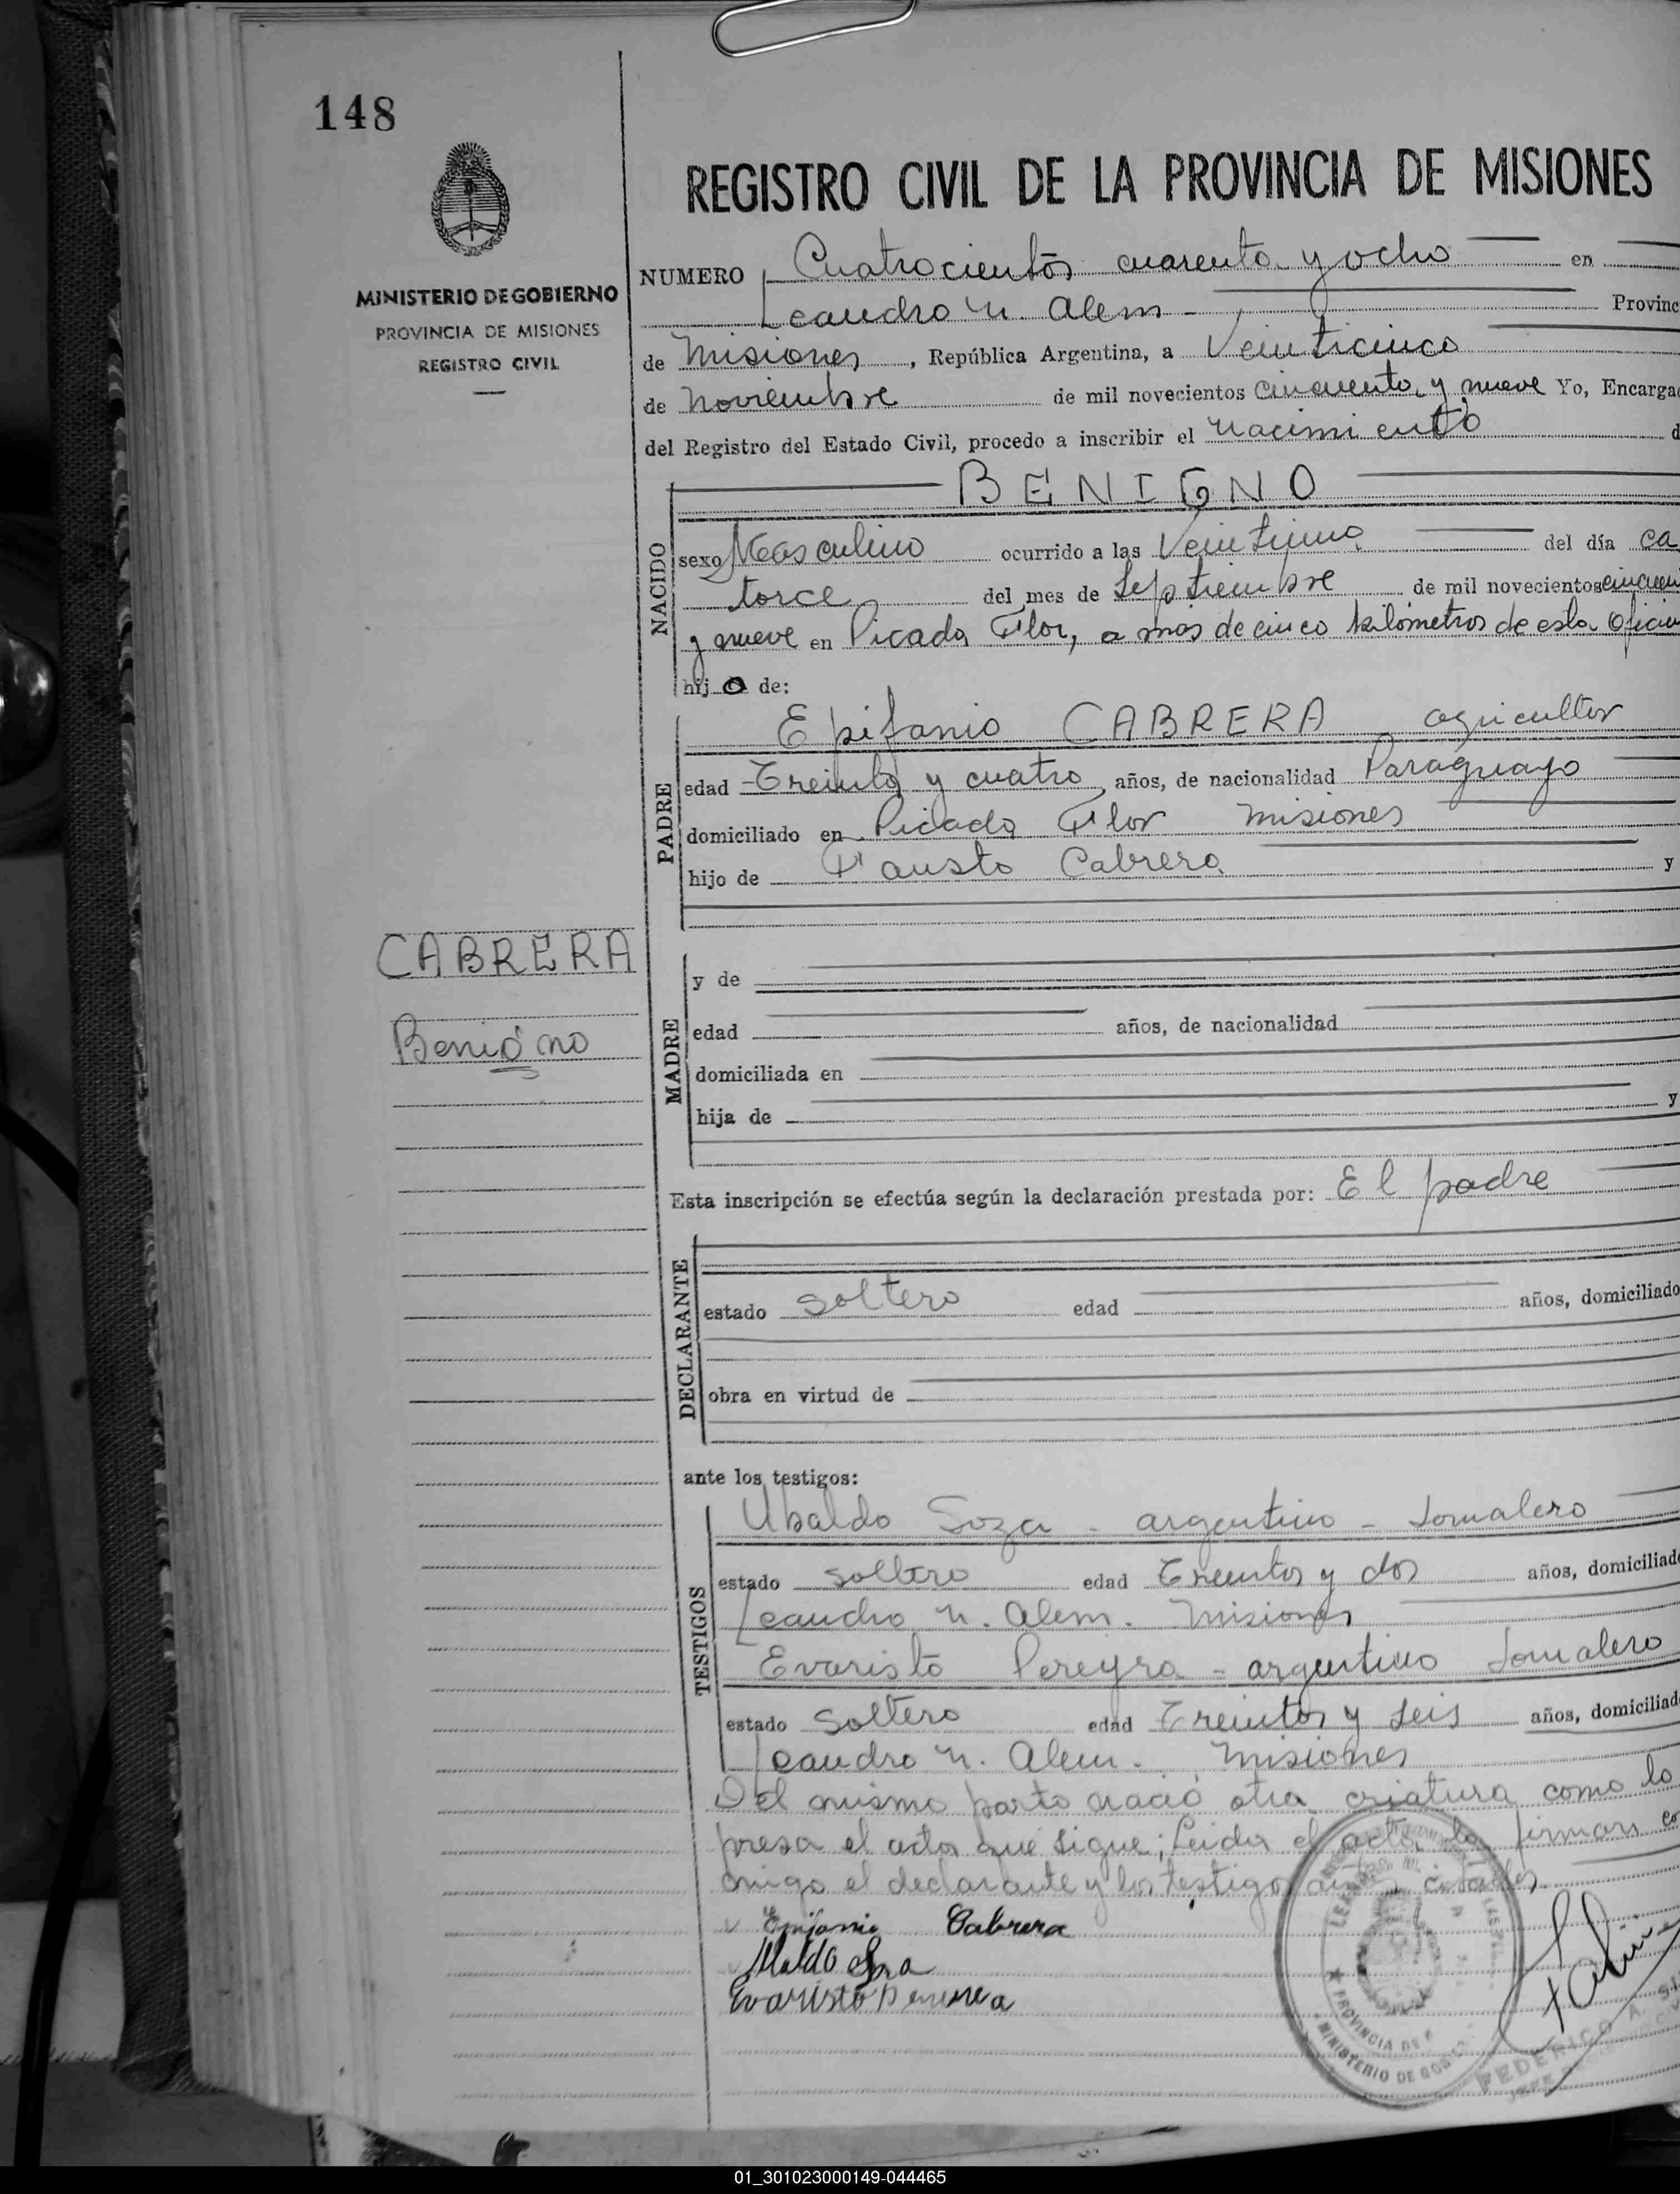 148
REGISTRO CIVIL DE LA PROVINCIA DE MISIONES
MINISTERIO DE GOBIERNO
PROVINCIA DE MISIONES
REGISTRO CIVIL
NUMERO Cuatrocientos cuarenta y ocho en
Leandro N. Alem - Provinc
de Misiones, República Argentina, a Veinticinco
de Noviembre de mil novecientos cincuenta y nueve Yo, Encarga
del Registro del Estado Civil, procedo a inscribir el Nacimiento d
BENIGNO
NACIDO
sexo Masculino ocurrido a las Veintiuna del día ca
torce del mes de Septiembre de mil novecientos cincuen
y nueve en Picada Flor, a mas de cinco kilómetros de esta Oficin
hijo de:
PADRE
Epifanio CABRERA agricultor
edad Treinta y cuatro años, de nacionalidad Paraguayo
domiciliado en Picada Flor Misiones
hijo de Fausto Cabrera y
CABRERA
Benigno
MADRE
y de
edad años, de nacionalidad
domiciliada en
hija de y
Esta inscripción se efectúa según la declaración prestada por: El padre
DECLARANTE
estado soltero edad años, domiciliado
obra en virtud de
ante los testigos:
TESTIGOS
Ubaldo Soza - argentino - Jornalero
estado soltero edad Treinta y dos años, domiciliado
Leandro N. Alem. Misiones
Evaristo Pereyra - argentino Jornalero
estado soltero edad Treinta y seis años, domiciliad
Leandro N. Alem. Misiones
Del mismo parto nació otra criatura como lo
presa el acta que sigue; Leida el acta la firman co
nmigo el declarante y los testigos antes citados.
Epifanio Cabrera
Ubaldo Soza
Evaristo Pereyra
PROVINCIA DE
MINISTERIO DE GOBIE
FEDERICO A.
01_301023000149-044465